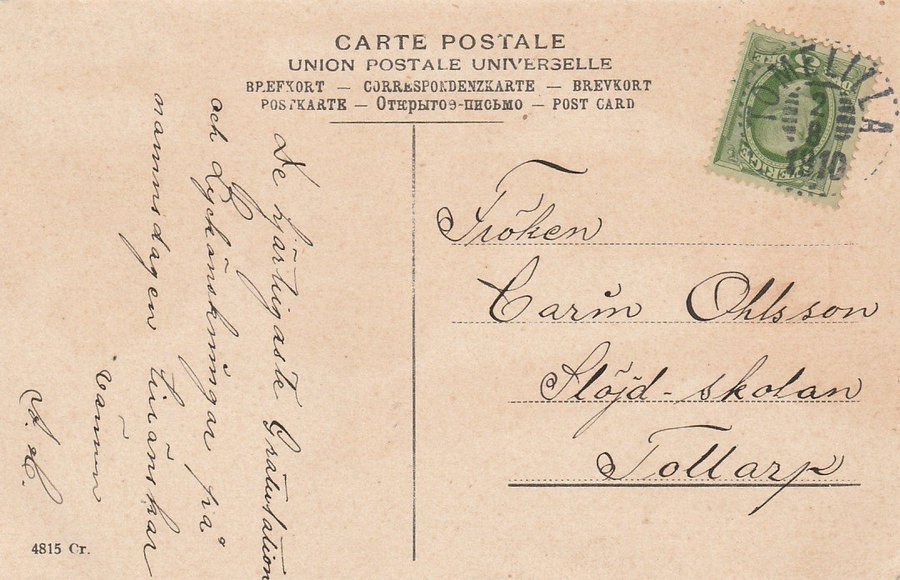 CARTE POSTALE
UNION POSTALE UNIVERSELLE
BREFKORT — CORRESPONDENZKARTE — BREVKORT
POSTKARTE — Открытое-письмо — POST CARD
De hjärtigaste Gratulation
och Lyckönskningar på
namnsdagen tillönskar
vännen
TOMELILLA
1910
SVERIGE
Fröken
Carin Ohlsson
Slöjd-skolan
Tollarp
4815 Cr.